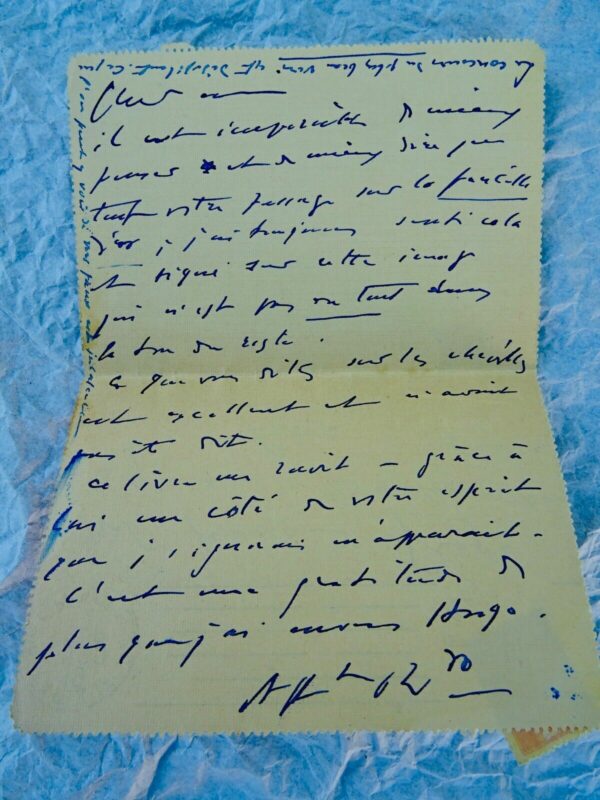 Cher ami
il est impossible de mieux
penser et de mieux dire que
tout votre passage sur la faucille
d'or, j'ai toujours senti cela
et tiqué sur cette image
qui n'est pas du tout dans
le ton du reste.
Ce que vous dites sur les chevilles
est excellent et n'avait
pas été dit.
Ce livre me ravit – grâce à
lui un côté de votre esprit
que j'ignorais m'apparait –
C'est une gratitude de
plus que j'ai envers Hugo.
Le concours du plus beau vers est désopilant. Ce que
l'on peut y voir